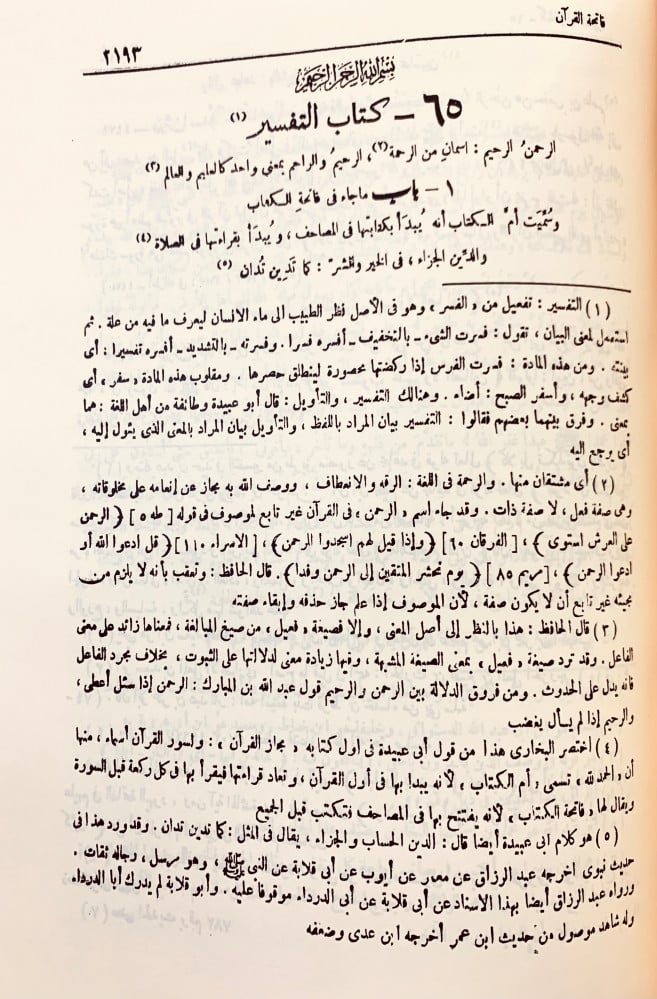 فاتحة القرآن
٢١٩٣
بسم الله الرحمن الرحيم
٦٥ - كتاب التفسير (١)
الرحمنُ الرحيم : اسمانِ من الرحمة (٢) ، الرحيمُ والراحم بمعنى واحد كالعليم والعالم (٣)
١ - باب ماجاء فى فاتحةِ الكتاب
وسُمِّيَت أمَّ الكتاب أنه يُبدَأ بكتابتها فى المصاحف ، ويُبدَأ بقراءتها فى الصلاة (٤)
والدِّين الجزاء ، فى الخير والشرّ : كما تَدِين تُدان (٥)
(١) التفسير : تفعيل من « الفسر » وهو فى الأصل نظر الطبيب الى ماء الانسان ليعرف ما فيه من علة . ثم
استعمل لمعنى البيان ، تقول : فسرت الشىء - بالتخفيف - أفسره فسرا . وفسرته - بالتشديد - أفسره تفسيرا : أى
بينته . ومن هذه المادة : فسرت الفرس إذا ركضتها محصورة لينطلق حصرها . ومقلوب هذه المادة « سفر » أى
كشف وجهه ، وأسفر الصبح : أضاء . وهنالك التفسير ، والتأويل : قال أبو عبيدة وطائفة من أهل اللغة : هما
بمعنى . وفرق بينهما بعضهم فقالوا : التفسير بيان المراد باللفظ ، والتأويل بيان المراد بالمعنى الذى يئول إليه ،
أى يرجع اليه
(٢) أى مشتقان منها . والرحمة فى اللغة : الرقه والانعطاف ، ووصف الله به مجاز عن إنعامه على مخلوقاته ،
وهى صفة فعل ، لا صفة ذات . وقد جاء اسم « الرحمن » فى القرآن غير تابع لموصوف فى قوله [ طه ٥ ] ﴿ الرحمن
على العرش استوى ﴾ ، [ الفرقان ٦٠ ] ﴿ وإذا قيل لهم اسجدوا للرحمن ﴾ ، [ الاسراء ١١٠ ] ﴿ قل ادعوا الله أو
ادعوا الرحمن ﴾ ، [ مريم ٨٥ ] ﴿ يوم نحشر المتقين إلى الرحمن وفدا ﴾ . قال الحافظ : وتعقب بأنه لا يلزم من
مجيئه غير تابع أن لا يكون صفة ، لأن الموصوف إذا علم جاز حذفه وإبقاء صفته
(٣) قال الحافظ : هذا بالنظر إلى أصل المعنى ، وإلا فصيغة « فعيل » من صيغ المبالغة ، فمعناها زائد على معنى
الفاعل . وقد ترد صيغة « فعيل » بمعنى الصيغة المشبهة ، وفيها زيادة معنى لدلالتها على الثبوت ، بخلاف مجرد الفاعل
فانه يدل على الحدوث . ومن فروق الدلالة بين الرحمن والرحيم قول عبد الله بن المبارك : الرحمن إذا سئل أعطى ،
والرحيم إذا لم يسأل يغضب
(٤) اختصر البخارى هذا من قول أبى عبيدة فى اول كتابه « مجاز القرآن » : ولسور القرآن أسماء ، منها
أن « الحمد لله » تسمى « أم الكتاب » لأنه يبدأ بها فى أول القرآن ، وتعاد قراءتها فيقرأ بها فى كل ركعة قبل السورة
ويقال لها « فاتحة الكتاب » لأنه يفتتح بها فى المصاحف فتكتب قبل الجميع
(٥) هو كلام ابى عبيدة أيضا قال : الدين الحساب والجزاء ، يقال فى المثل : كما تدين تدان . وقد ورد هذا فى
حديث نبوى اخرجه عبد الرزاق عن معمر عن أيوب عن أبى قلابة عن النبى ﷺ ، وهو مرسل ، رجاله ثقات .
ورواه عبد الرزاق أيضا بهذا الاسناد عن أبى قلابة عن أبى الدرداء موقوفا عليه . وأبو قلابة لم يدرك أبا الدرداء
وله شاهد موصول من حديث ابن عمر أخرجه ابن عدى وضعفه